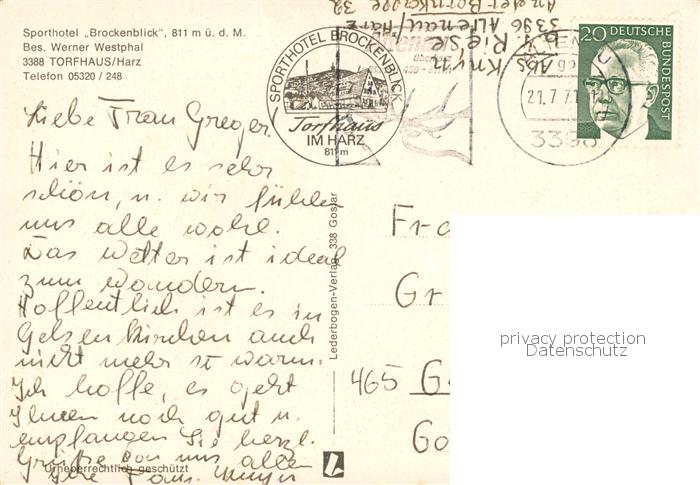 Sporthotel „Brockenblick", 811 m ü. d. M.
Bes. Werner Westphal
3388 TORFHAUS/Harz
Telefon 05320 / 248
SPORTHOTEL BROCKENBLICK
Torfhaus
IM HARZ
811 m
Abs.
Riesie
3396 Altenau/Harz
21.7.71
3396
20 DEUTSCHE
BUNDESPOST
Liebe Frau Greger.
Hier ist es sehr
schön, u. wir fühlen
uns alle wohl.
Das Wetter ist ideal
zum wandern.
Hoffentlich ist es in
Gelsenkirchen auch
nicht mehr so warm.
Ich hoffe, es geht
Ihnen noch gut u.
empfangen Sie herzl.
Grüße von uns allen
Ihre Fam.
Urheberrechtlich geschützt
Lederbogen-Verlag 338 Goslar
Fra
Gr
465 G
Go
privacy protection
Datenschutz